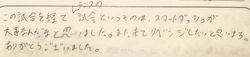 テニスの
この試合を経て、試合といっものは、スマートダッシュが
大事なんだなと思いました。また、来てリベンジしたいと思います。
ありがとうございました。